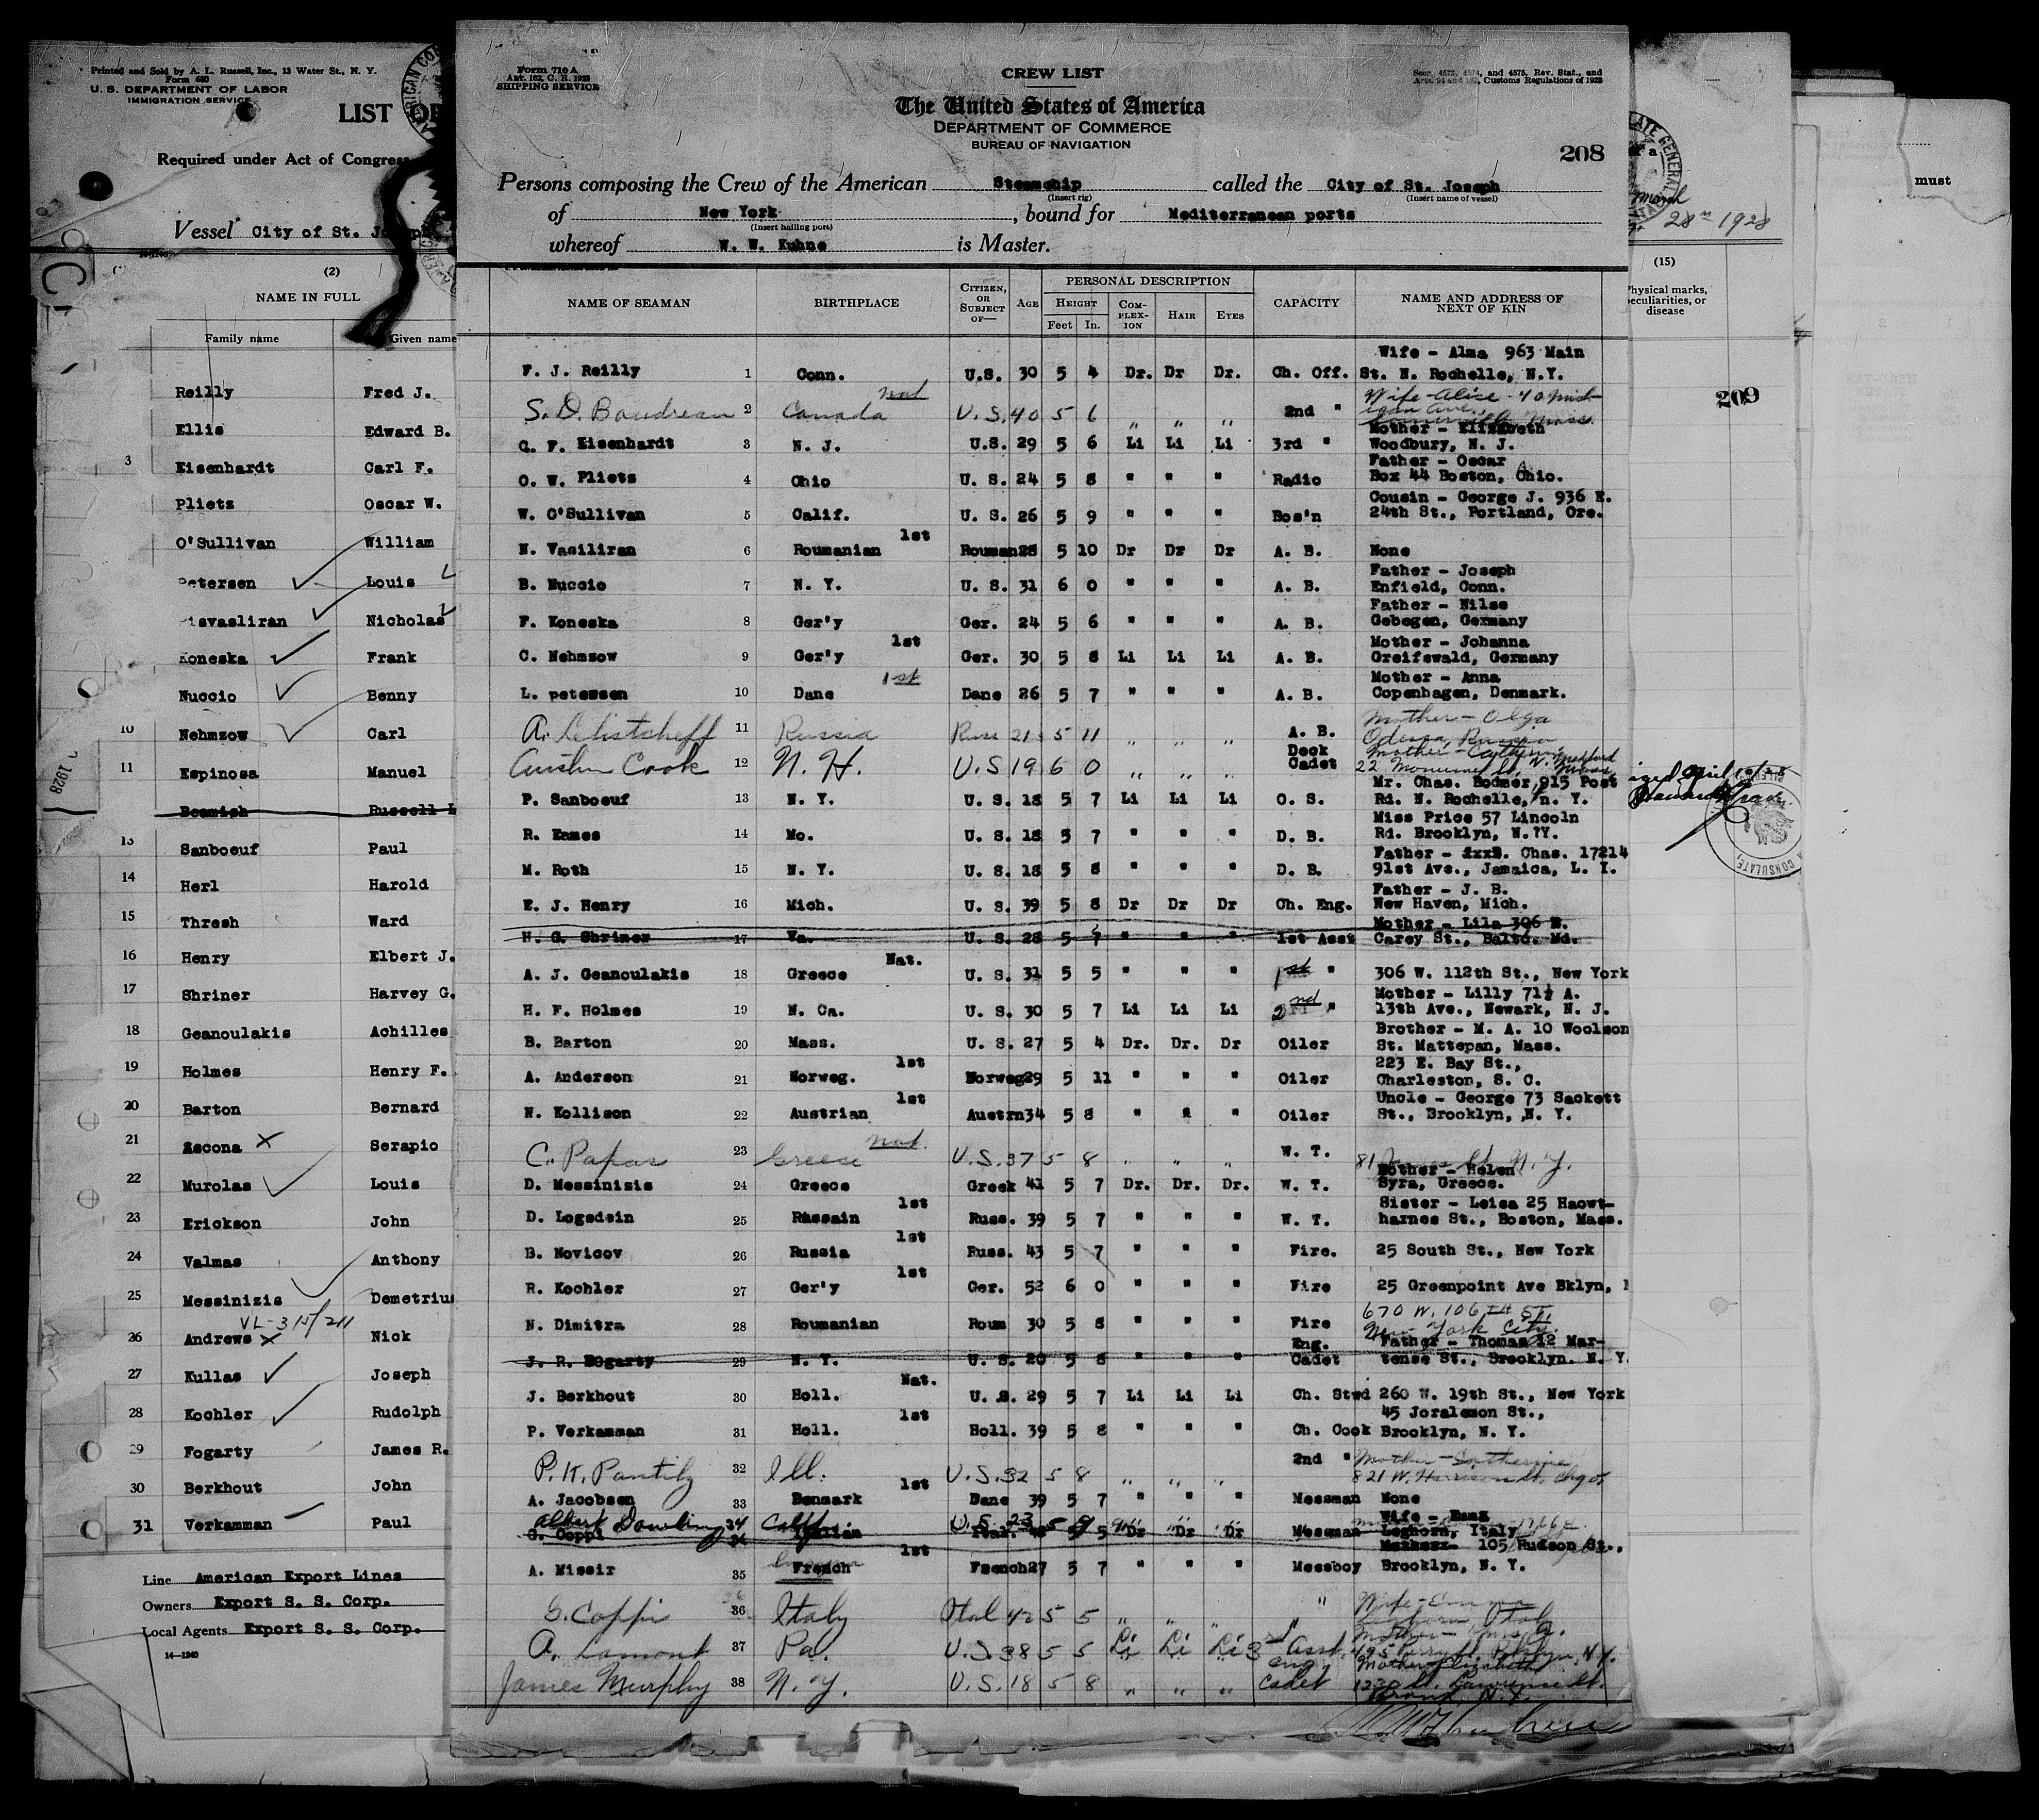 Printed and Sold by A. L. Russell, Inc., 13 Water St., N. Y.
Form 680
U. S. DEPARTMENT OF LABOR
IMMIGRATION SERVICE
LIST OF
Required under Act of Congress
Vessel City of St. Joseph
(2)
NAME IN FULL
Family name Given name
Reilly Fred J.
Ellis Edward B.
3 Eisenhardt Carl F.
Plietz Oscar W.
O'Sullivan William
Petersen Louis
Nicholas
Koneska Frank
Nuccio Benny
10 Nehmzow Carl
11 Espinosa Manuel
Beamish Russell L
13 Sanboeuf Paul
14 Herl Harold
15 Thresh Ward
16 Henry Elbert J.
17 Shriner Harvey G.
18 Geanoulakis Achilles
19 Holmes Henry F.
20 Barton Bernard
21 Ascona x Serapio
22 Murolas Louis
23 Erickson John
24 Valmas Anthony
25 Messinizis Demetrius
26 Andrews x Nick
27 Kullas Joseph
28 Kochler Rudolph
29 Fogarty James R.
30 Berkhout John
31 Verkamman Paul
Line American Export Lines
Owners Export S. S. Corp.
Local Agents Export S. S. Corp.
14—1240
1928
Form 710 A
Art. 162, C. R. 1923
SHIPPING SERVICE
CREW LIST
Secs. 4573, 4574, and 4575, Rev. Stat., and
Customs Regulations of 1923
The United States of America
DEPARTMENT OF COMMERCE
BUREAU OF NAVIGATION
208
Persons composing the Crew of the American Steamship called the City of St. Joseph
(Insert rig) (Insert name of vessel)
of New York, bound for Mediterranean ports
(Insert hailing port)
whereof W. W. Kuhne is Master.
NAME OF SEAMAN BIRTHPLACE CITIZEN, OR SUBJECT OF— AGE PERSONAL DESCRIPTION HEIGHT Feet In. COMPLEXION HAIR EYES CAPACITY NAME AND ADDRESS OF NEXT OF KIN
Wife - Alma 963 Main
F. J. Reilly 1 Conn. U.S. 30 5 4 Dr. Dr Dr. Ch. Off. St. N. Rochelle, N.Y.
Nat Wife-Alice - 40
S. D. Baudreau 2 Canada U.S. 40 5 6 " " " 2nd "
Mother - Elizabeth
C. F. Eisenhardt 3 N. J. U.S. 29 5 6 Li Li Li 3rd " Woodbury, N. J.
Father - Oscar
O. W. Plietz 4 Ohio U. S. 24 5 8 " " " Radio Box 44 Boston, Ohio.
Cousin - George J. 936 E.
W. O'Sullivan 5 Calif. U. S. 26 5 9 " " " Bos'n 24th St., Portland, Ore.
1st
N. Vasiliran 6 Roumanian Rouman 28 5 10 Dr Dr Dr A. B. None
Father - Joseph
B. Nuccio 7 N. Y. U. S. 31 6 0 " " " A. B. Enfield, Conn.
Father - Nilse
F. Koneska 8 Ger'y Ger. 24 5 6 " " " A. B. Gebegen, Germany
1st Mother - Johanna
C. Nehmzow 9 Ger'y Ger. 30 5 8 Li Li Li A. B. Greifswald, Germany
1st Mother - Anna
L. petersen 10 Dane Dane 26 5 7 " " " A. B. Copenhagen, Denmark.
Mother - Olga
A. Chistcheff 11 Russia Russ 21 5 11 " " " A. B. Odessa, Russia
Deck Mother - Catherine
Austin Cook 12 N. H. U.S 19 6 0 " " " Cadet 22 Monument St. W. Medford Mass
Mr. Chas. Bodmer, 915 Post
P. Sanboeuf 13 N. Y. U. S. 18 5 7 Li Li Li O. S. Rd. N. Rochelle, N. Y.
Miss Price 57 Lincoln
R. Eames 14 Mo. U. S. 18 5 7 " " " D. B. Rd. Brooklyn, N.?Y.
Father - Chas. 17214
M. Roth 15 N. Y. U. S. 18 5 8 " " " D. B. 91st Ave., Jamaica, L. I.
Father - J. B.
E. J. Henry 16 Mich. U. S. 39 5 8 Dr Dr Dr Ch. Eng. New Haven, Mich.
Mother - Lila 306 N.
H. G. Shriner 17 Va. U. S. 28 5 7 " " " 1st Asst Carey St., Balto. Md.
Nat.
A. J. Geanoulakis 18 Greece U. S. 31 5 5 " " " 1st " 306 W. 112th St., New York
Mother - Lilly 71½ A.
H. F. Holmes 19 N. Ca. U. S. 30 5 7 Li Li Li 2nd " 13th Ave., Newark, N. J.
Brother - M. A. 10 Woolson
B. Barton 20 Mass. U. S. 27 5 4 Dr. Dr. Dr Oiler St. Mattepan, Mass.
1st 223 E. Bay St.,
A. Anderson 21 Norweg. Norweg 29 5 11 " " " Oiler Charleston, S. C.
1st Uncle - George 73 Sackett
N. Kollison 22 Austrian Austrn 34 5 8 " " " Oiler St., Brooklyn, N. Y.
Nat.
C. Papas 23 Greece U.S. 37 5 8 " " " W. T. 81 St. N. Y.
Mother - Helen
D. Messinizis 24 Greece Greek 41 5 7 Dr. Dr. Dr. W. T. Syra, Greece.
1st Sister - Leisa 25 Haowt-
D. Logsdein 25 Russain Russ. 39 5 7 " " " W. T. harnes St., Boston, Mass.
1st
B. Novicov 26 Russia Russ. 43 5 7 " " " Fire. 25 South St., New York
1st
R. Kochler 27 Ger'y Ger. 52 6 0 " " " Fire 25 Greenpoint Ave Bklyn,
670 W. 106 TH ST.
N. Dimitra 28 Roumanian Roum 30 5 8 " " " Fire New York City.
Eng. Father - Thomas 12 Mar-
J. R. Fogarty 29 N. Y. U. S. 20 5 8 " " " Cadet tense St., Brooklyn. N. Y.
Nat.
J. Berkhout 30 Holl. U. S. 29 5 7 Li Li Li Ch. Stwd 260 W. 19th St., New York
1st 45 Joralemon St.,
P. Verkamman 31 Holl. Holl. 39 5 8 " " " Ch. Cook Brooklyn, N. Y.
2nd " Mother - Catherine
P. K. Pantily 32 Ill. U.S. 32 5 8 " " " 821 W. Harrison St. Chgo
1st
A. Jacobsen 33 Denmark Dane 39 5 7 " " " Messman None
Albert Dowling 34 Calif U.S. 23 5
Wife - Emma
G. Coppi Italian Ital. 5 5 Dr Dr Dr Messman Leghorn, Italy
1st 105 Hudson St.,
A. Missir 35 French French 27 5 7 " " " Messboy Brooklyn, N. Y.
Wife - Emma
G. Coppi 36 Italy Ital 42 5 5 " " " " Leghorn Italy
A. Lamont 37 Pa. U.S. 38 5 5 Li Li Li 3rd Asst. 495 Perry St. Bklyn, N.Y.
eng. Mother Elizabeth
James Murphy 38 N. Y. U.S. 18 5 8 " " " Cadet 1230 St. Lawrence St.
Bronx, N.Y.
March
28th 1928
(15)
Physical marks, peculiarities, or disease
209
must